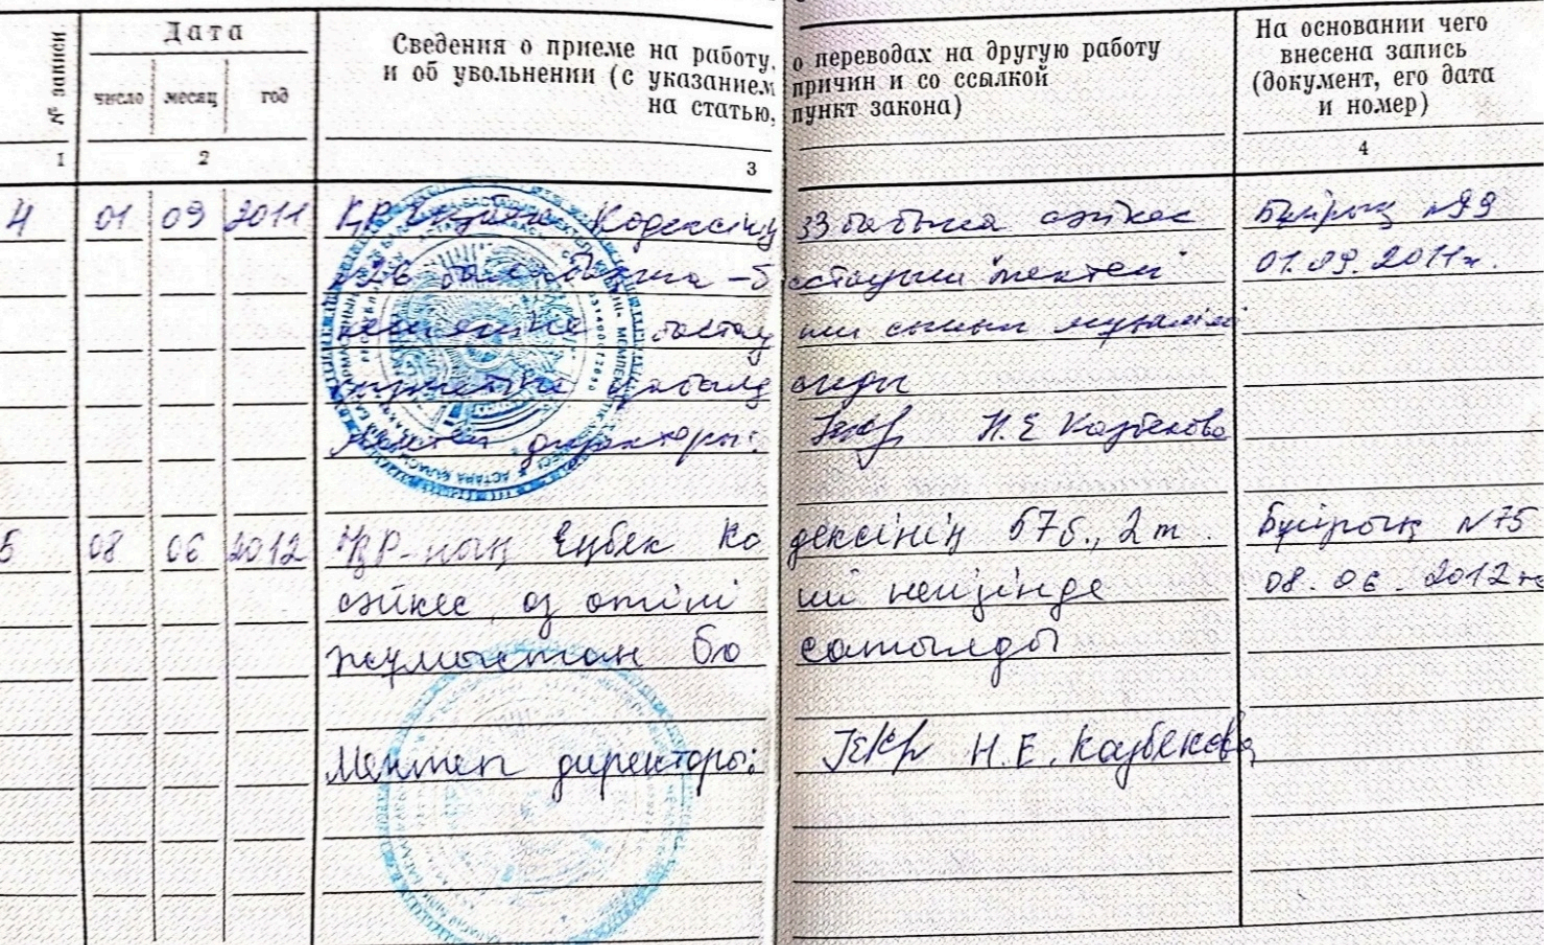 № записи
Дата
число месяц год
Сведения о приеме на работу, о переводах на другую работу
и об увольнении (с указанием причин и со ссылкой
на статью, пункт закона)
На основании чего
внесена запись
(документ, его дата
и номер)
1 2 3 4
4 01 09 2011 ҚР Еңбек Кодексінің 33 бабына сәйкес Бұйрық №99
бастауыш мектеп 01.09.2011ж.
бастауыш сынып мұғалімі
қызметіне қабылданды
Мектеп директоры: Н.Е Казбекова
5 08 06 2012 ҚР-ның Еңбек Кодексінің 57б., 2т. Бұйрық №75
сәйкес, өз өтініші негізінде 08.06.2012ж
жұмыстан босатылды
Мектеп директоры: Н.Е.Казбекова